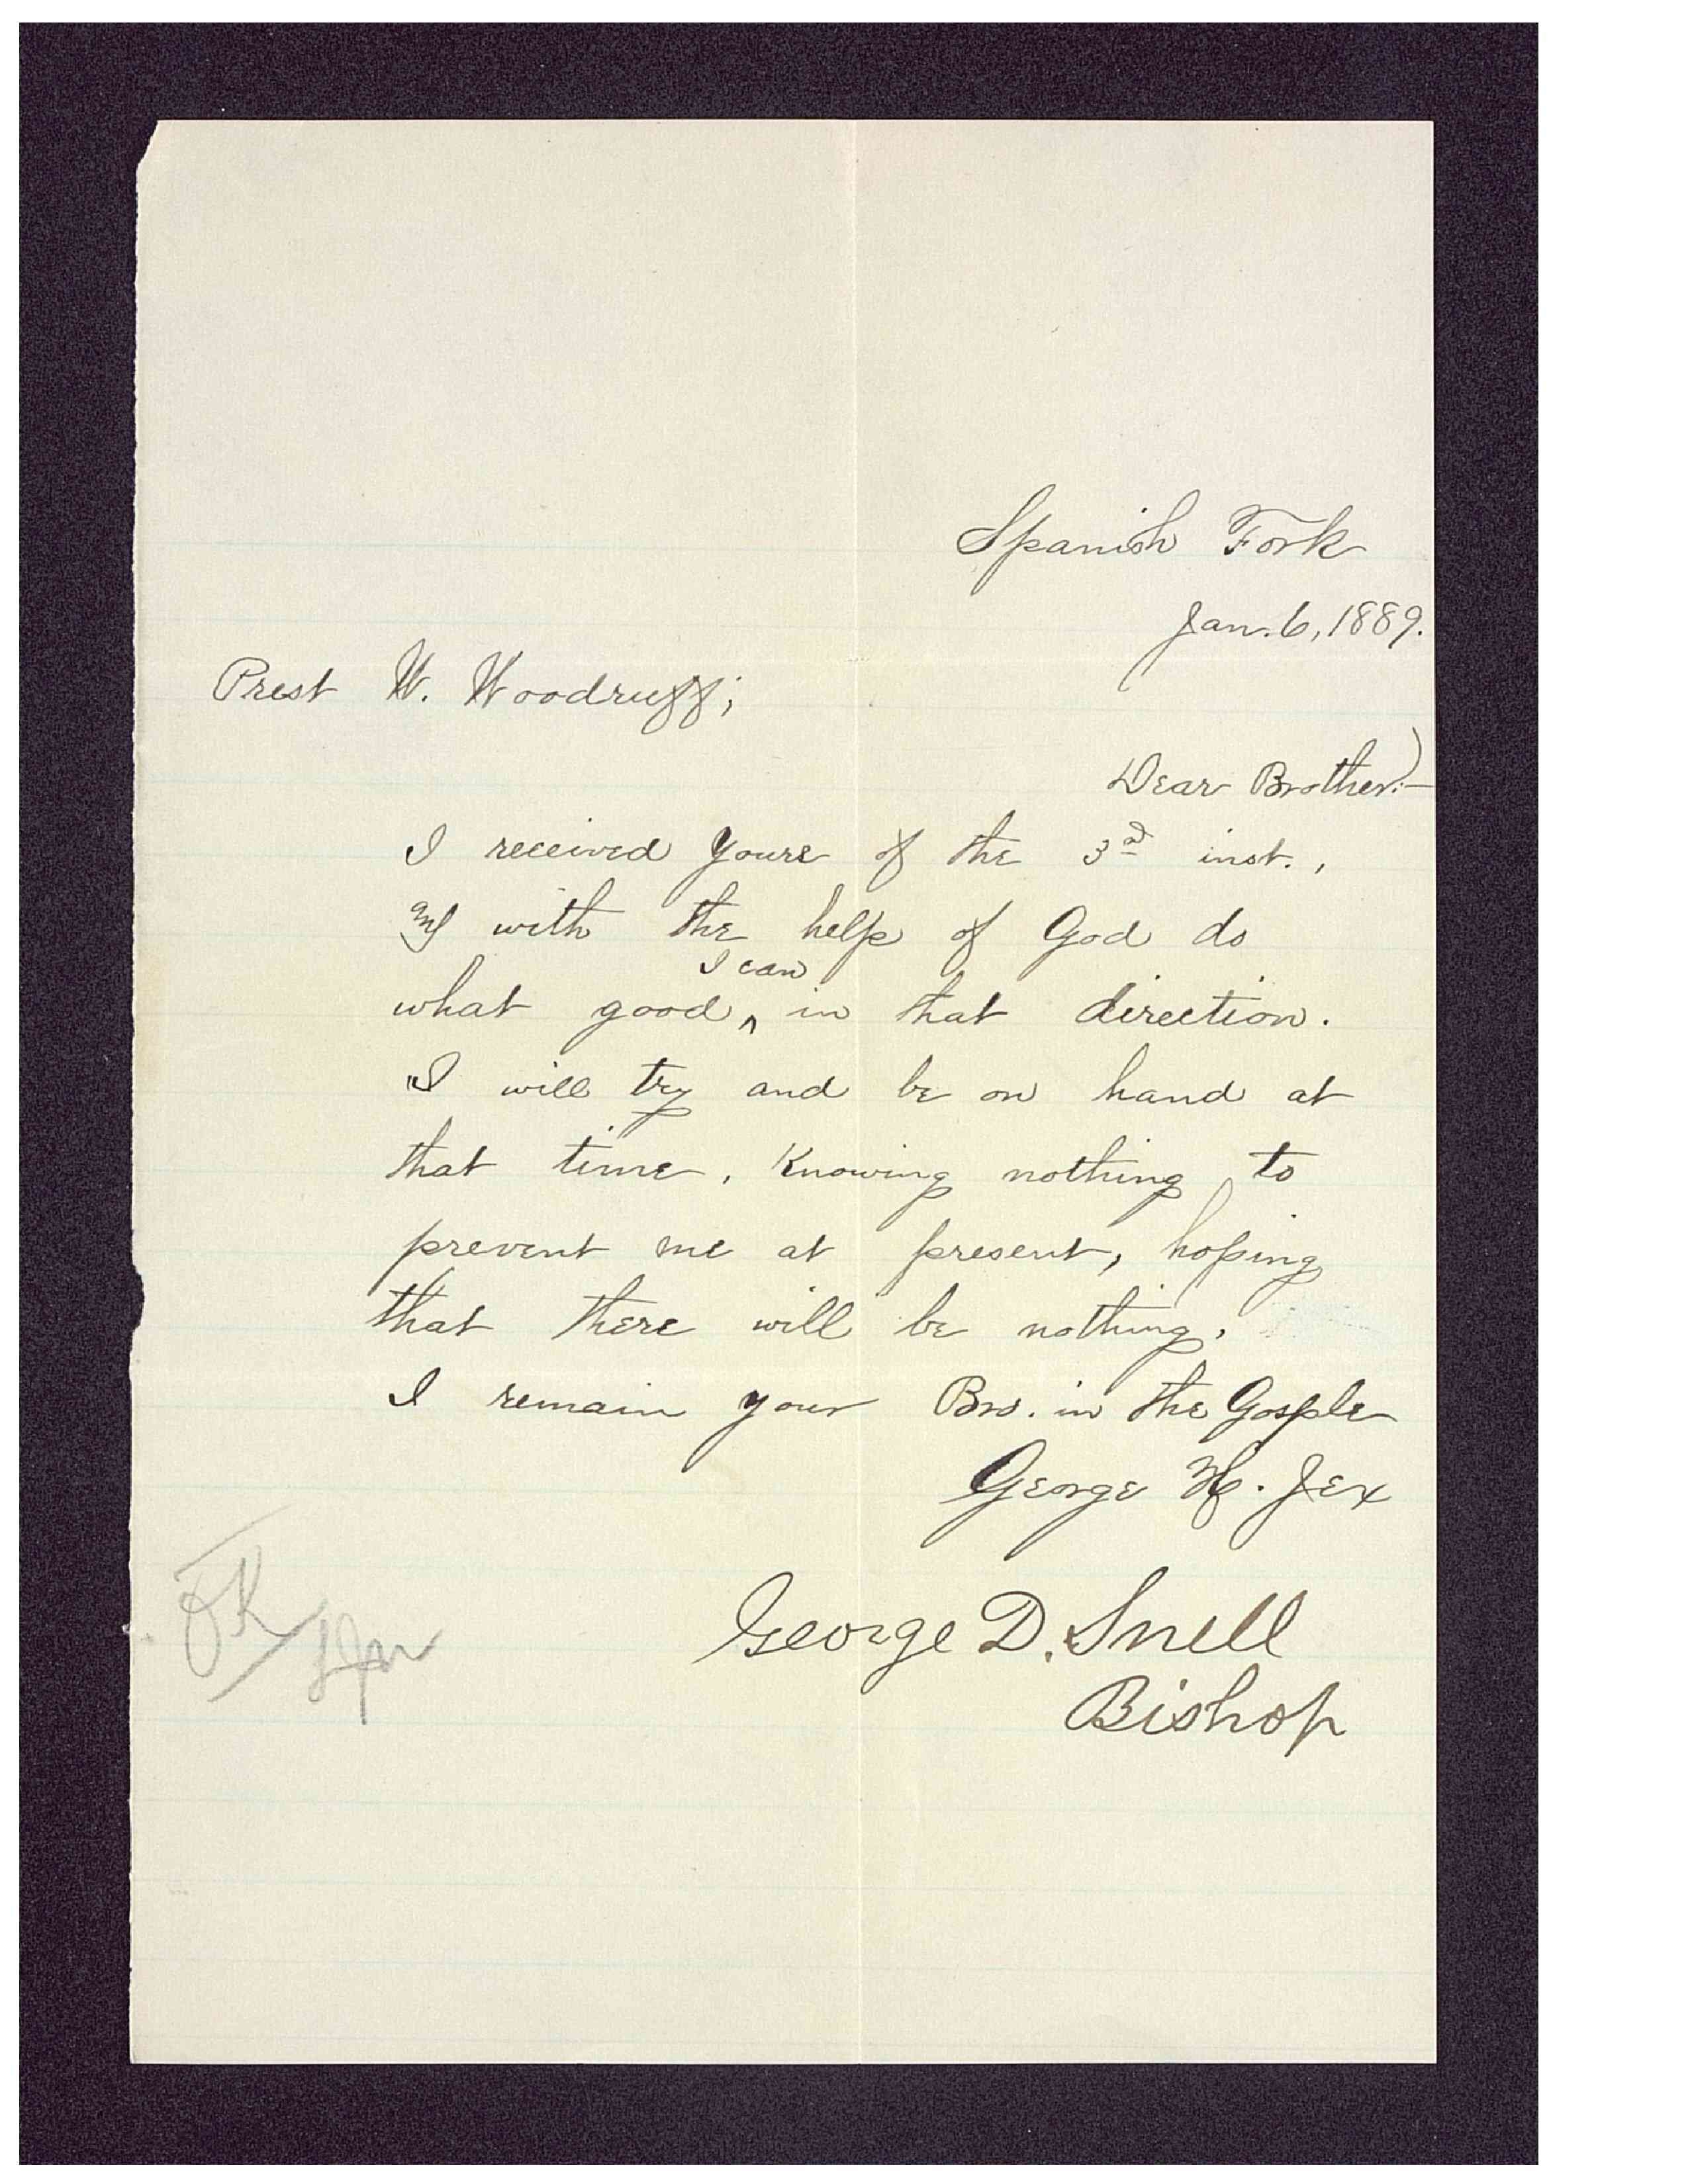 Spanish Fork
Jan. 6, 1889.
Prest W. Woodruff;
Dear Brother:—
I received youre of the 3rd inst.,
with the help of God do
I can
what good ^ in that direction.
I will try and be on hand at
that time. Knowing nothing to
prevent me at present, hoping
that there will be nothing.
I remain your Bro. in the Gosple
George H. Jex
George D. Snell
Bishop
OK